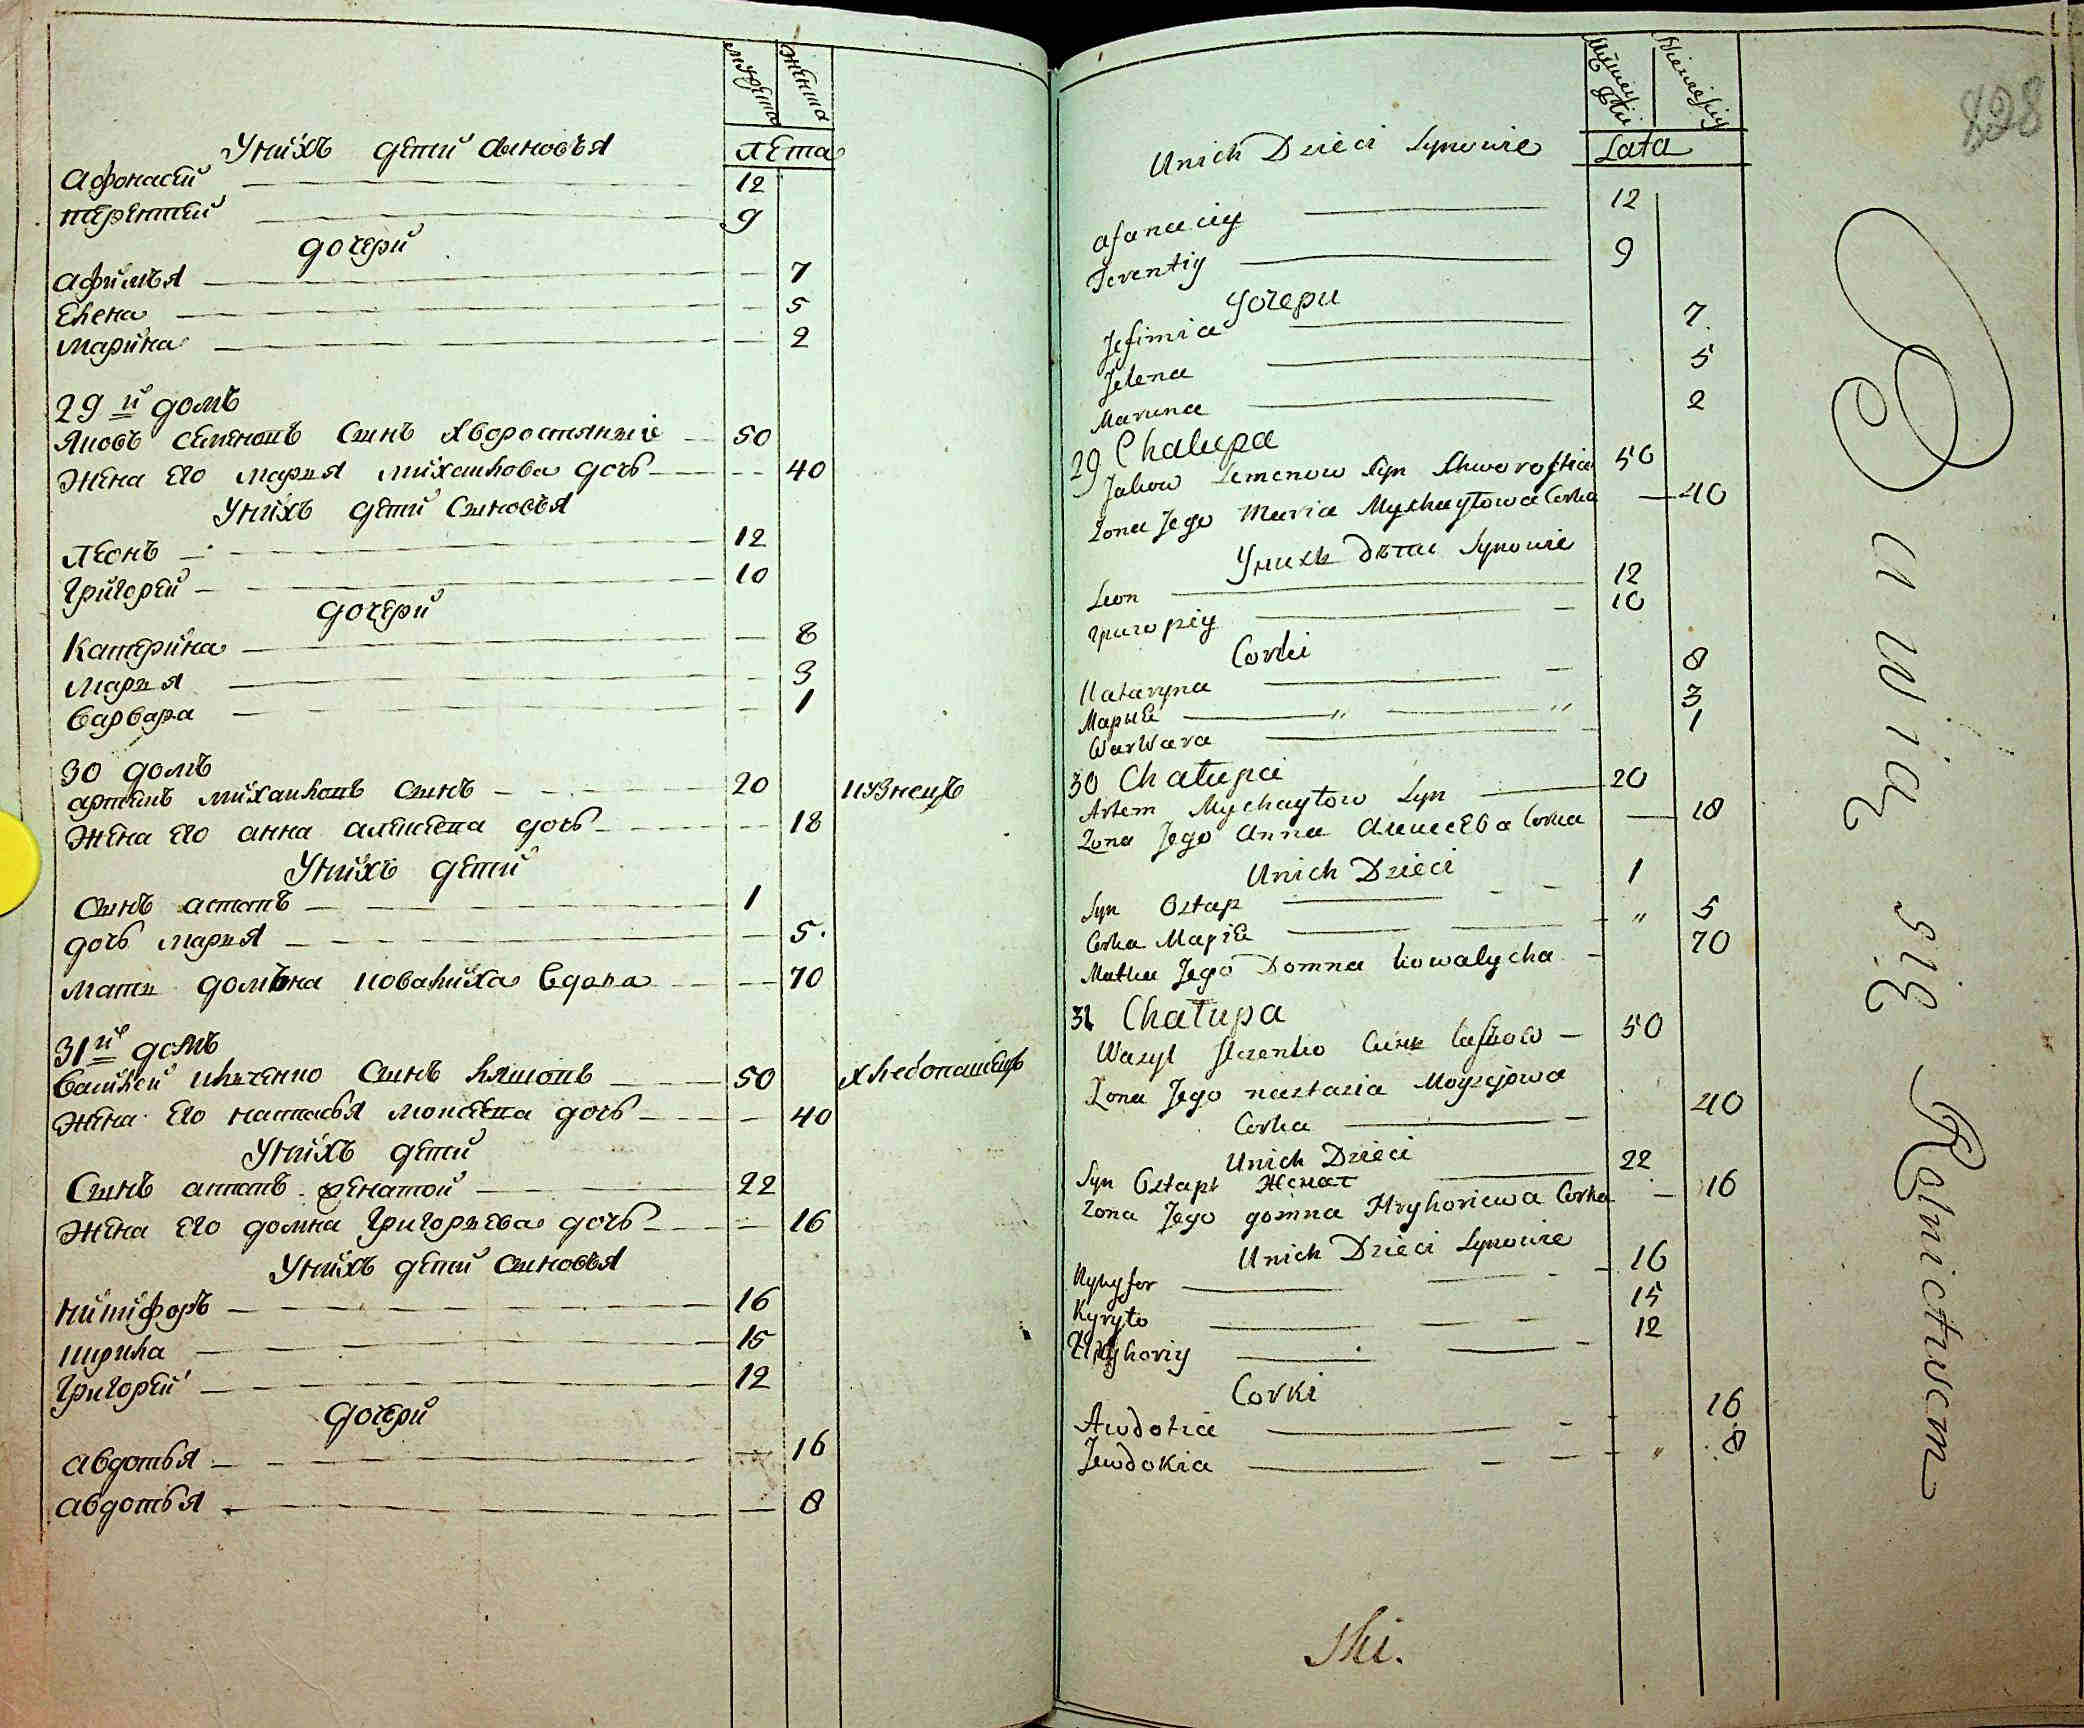 мужеска
женска
Лета
У нихъ дети сыновья
Афонасей 12
терентей 9
дочери
Афимья 7
Елена 5
Марина 2
29й домъ
Яковъ семеновъ сынъ хворостяный 50
жена его марья михайлова дочь 40
У нихъ дети сыновья
Леонъ 12
Григорей 10
дочери
Катерина 8
Марья 3
Варвара 1
30 домъ
артемъ михайловъ сынъ 20 кузнецъ
жена его анна алексеева дочь 18
У нихъ дети
сынъ астапъ 1
дочь марья 5
мать домъна ковалиха вдова 70
31й домъ
Василей ильченко сынъ 50 хлебопашецъ
жена его настасья моисеева дочь 40
У нихъ дети
Сынъ астапъ женатой 22
жена его домна Григорьева дочь 16
У нихъ дети сыновья
никифоръ 16
кирила 15
Григорей 12
дочери
авдотья 16
авдотья 8
828
Lata
Unich Dzieci Synowie
afanaciy 12
Terentiy 9
дочери
Jefimia 7
Jelena 5
Maruna 2
29 Chalupa
Jakow Semenow Syn 50
Zona Jego Maria Mychayłowa Corka 40
Унихъ дѣти Synowie
Leon 12
григоріу 10
Corki
Kataryna 8
Марыа 3
WarWara 1
30 Chałupa
Artem Mychayłow Syn 20
Zona Jego Anna Алексѣва Corka 18
Unich Dzieci
Syn Ostap 1
Corka Маріа 5
Matka Jego Domna kowalycha 70
31 Chałupa
Wasyl Ilczenko Синъ 50
Zona Jego nastasia Moysejowa
Corka 40
Unich Dzieci
Syn Ostap Женат 22
Zona Jego домna Hryhoriewa Corka 16
Unich Dzieci Synowie
Nykyfor 16
Kyryło 15
Hryhoriy 12
Corki
Awdotia 16
Jewdokia 8
ski.
uwią się Rolnictwem